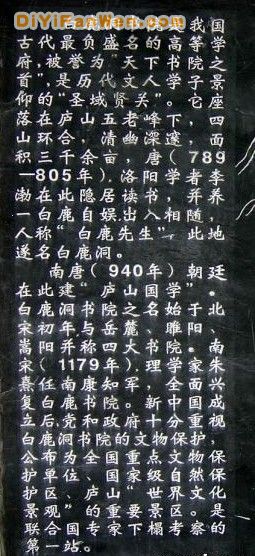 DiYiFanWen.com
白鹿洞书院是我国
古代最负盛名的高等学
府,被誉为“天下书院之
首”是历代文人学子景
仰的“圣域贤关”。它座
落在庐山五老峰下,四
山环合,清幽深邃,面
积三千余亩,唐(789
—805年),洛阳学者李
渤在此隐居读书,并养
一白鹿自娱,出入相随,
人称“白鹿先生”,此地
遂名白鹿洞。
南唐(940年)朝廷
在此建“庐山国学”。
白鹿洞书院之名始于北
宋初年,与岳麓、睢阳、
嵩阳并称四大书院。南
宋(1179年),理学家朱
熹任南康知军,全面兴
复白鹿书院。新中国成
立后,党和政府十分重视
白鹿洞书院的文物保护,
公布为全国重点文物保
护单位、国家级自然保
护区、庐山“世界文化
景观”的重要景区。是
联合国专家下榻考察的
第一站。